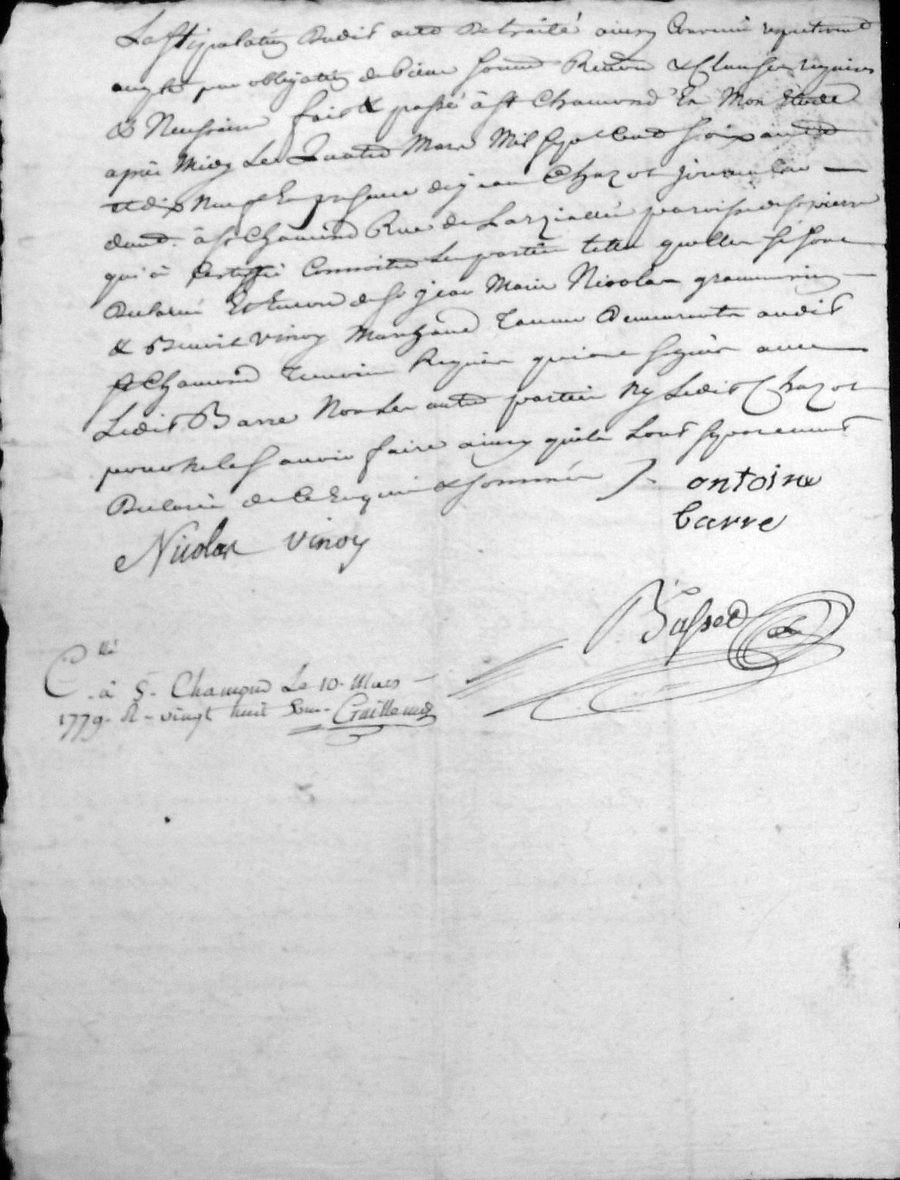 La stipulation dudit acte de traité ainsy convenu
par obligation de biens soumis Renon & Clauses requises
& Necessaires fait & passé à St Chamond En Mon étude
après Midy Le quatre Mars Mil Sept Cent Soixante
et dix Neuf En présence de jean Chazot journalier
demt. à St Chamond Rue de paroisse de St pierre
qui a Certiffié Connoitre Les parties telles quelles se sont
declaré Et Encore de Sr jean Marie Nicolas
& Benoit Vinoy Marchand Demeurants audit
St Chamond Temoins Requis qui ont signé avec
Ledit Barre Non Les autres parties Ny Ledit Chazot
pour ne le Savoir faire ainsy qu'ils L'ont
Declaré de ce Enquis & Sommés
antoine
barre
Nicolas vinoy
Basset
C.llé à S. Chamond Le 10. Mars
1779. R. vingt huit Sous